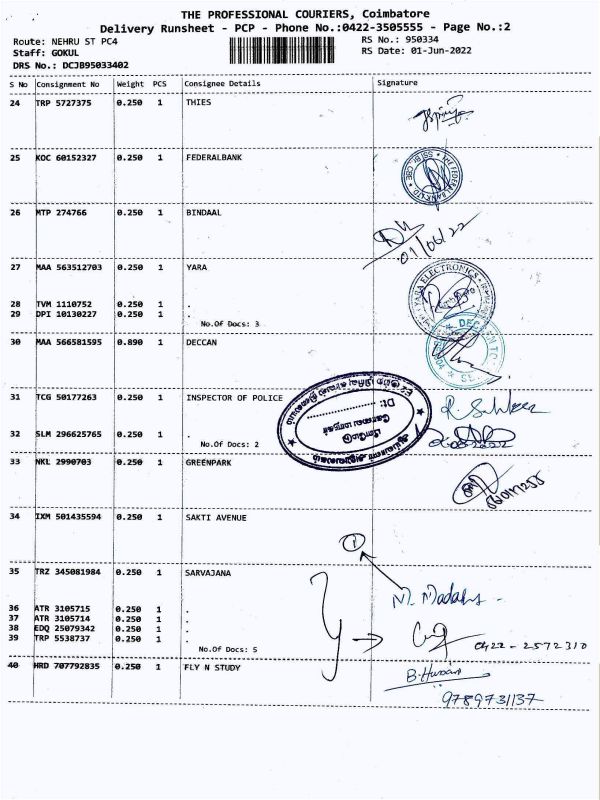 THE PROFESSIONAL COURIERS, Coimbatore
Delivery Runsheet - PCP - Phone No.:0422-3505555 - Page No.:2
Route: NEHRU ST PC4
RS No.: 950334
Staff: GOKUL
RS Date: 01-Jun-2022
DRS No.: DCJB95033402
S No Consignment No Weight PCS Consignee Details Signature
24 TRP 5727375 0.250 1 THIES
25 KOC 60152327 0.250 1 FEDERALBANK
26 MTP 274766 0.250 1 BINDAAL
01/06/22
27 MAA 563512703 0.250 1 YARA
YARA ELECTRONICS
28 TVM 1110752 0.250 1 .
29 DPI 10130227 0.250 1 .
No.Of Docs: 3
30 MAA 566581595 0.890 1 DECCAN
31 TCG 50177263 0.250 1 INSPECTOR OF POLICE
32 SLM 296625765 0.250 1 .
No.Of Docs: 2
33 NKL 2990703 0.250 1 GREENPARK
34 IXM 501435594 0.250 1 SAKTI AVENUE
1
35 TRZ 345081984 0.250 1 SARVAJANA
36 ATR 3105715 0.250 1 .
37 ATR 3105714 0.250 1 .
38 EDQ 25079342 0.250 1 .
39 TRP 5538737 0.250 1 .
0422-2572310
No.Of Docs: 5
40 HRD 707792835 0.250 1 FLY N STUDY
9789731137